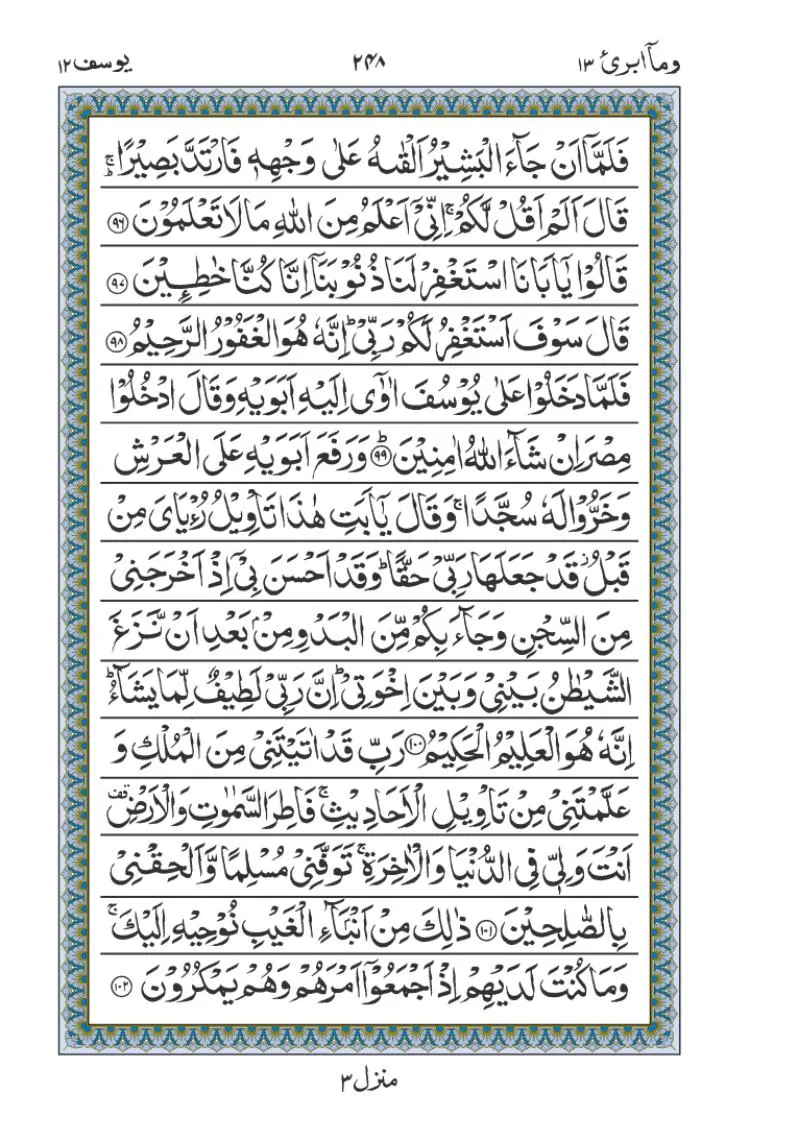 وماۤ ابرئ ١٣ ٢٤٨ یوسف ١٢
فَلَمَّاۤ اَنْ جَآءَ الْبَشِیْرُ اَلْقٰىهُ عَلٰى وَجْهِهٖ فَارْتَدَّ بَصِیْرًا ۚؕ
قَالَ اَلَمْ اَقُلْ لَّكُمْ ۚ اِنِّیْۤ اَعْلَمُ مِنَ اللّٰهِ مَا لَا تَعْلَمُوْنَ ﴿۹۶﴾
قَالُوْا یٰۤاَبَانَا اسْتَغْفِرْ لَنَا ذُنُوْبَنَاۤ اِنَّا كُنَّا خٰطِـِٕیْنَ ﴿۹۷﴾
قَالَ سَوْفَ اَسْتَغْفِرُ لَكُمْ رَبِّیْ ؕ اِنَّهٗ هُوَ الْغَفُوْرُ الرَّحِیْمُ ﴿۹۸﴾
فَلَمَّا دَخَلُوْا عَلٰى یُوْسُفَ اٰوٰۤى اِلَیْهِ اَبَوَیْهِ وَقَالَ ادْخُلُوْا
مِصْرَ اِنْ شَآءَ اللّٰهُ اٰمِنِیْنَ ﴿ؕ۹۹﴾ وَرَفَعَ اَبَوَیْهِ عَلَى الْعَرْشِ
وَخَرُّوْا لَهٗ سُجَّدًا ۚ وَقَالَ یٰۤاَبَتِ هٰذَا تَاْوِیْلُ رُءْیَایَ مِنْ
قَبْلُ ؗ قَدْ جَعَلَهَا رَبِّیْ حَقًّا ؕ وَقَدْ اَحْسَنَ بِیْۤ اِذْ اَخْرَجَنِیْ
مِنَ السِّجْنِ وَجَآءَ بِكُمْ مِّنَ الْبَدْوِ مِنْۢ بَعْدِ اَنْ نَّزَغَ
الشَّیْطٰنُ بَیْنِیْ وَبَیْنَ اِخْوَتِیْ ؕ اِنَّ رَبِّیْ لَطِیْفٌ لِّمَا یَشَآءُ ؕ
اِنَّهٗ هُوَ الْعَلِیْمُ الْحَكِیْمُ ﴿۱۰۰﴾ رَبِّ قَدْ اٰتَیْتَنِیْ مِنَ الْمُلْكِ وَ
عَلَّمْتَنِیْ مِنْ تَاْوِیْلِ الْاَحَادِیْثِ ۚ فَاطِرَ السَّمٰوٰتِ وَالْاَرْضِ قف
اَنْتَ وَلِیّٖ فِی الدُّنْیَا وَالْاٰخِرَةِ ۚ تَوَفَّنِیْ مُسْلِمًا وَّاَلْحِقْنِیْ
بِالصّٰلِحِیْنَ ﴿۱۰۱﴾ ذٰلِكَ مِنْ اَنْۢبَآءِ الْغَیْبِ نُوْحِیْهِ اِلَیْكَ ۚ
وَمَا كُنْتَ لَدَیْهِمْ اِذْ اَجْمَعُوْۤا اَمْرَهُمْ وَهُمْ یَمْكُرُوْنَ ﴿۱۰۲﴾
منزل ٣